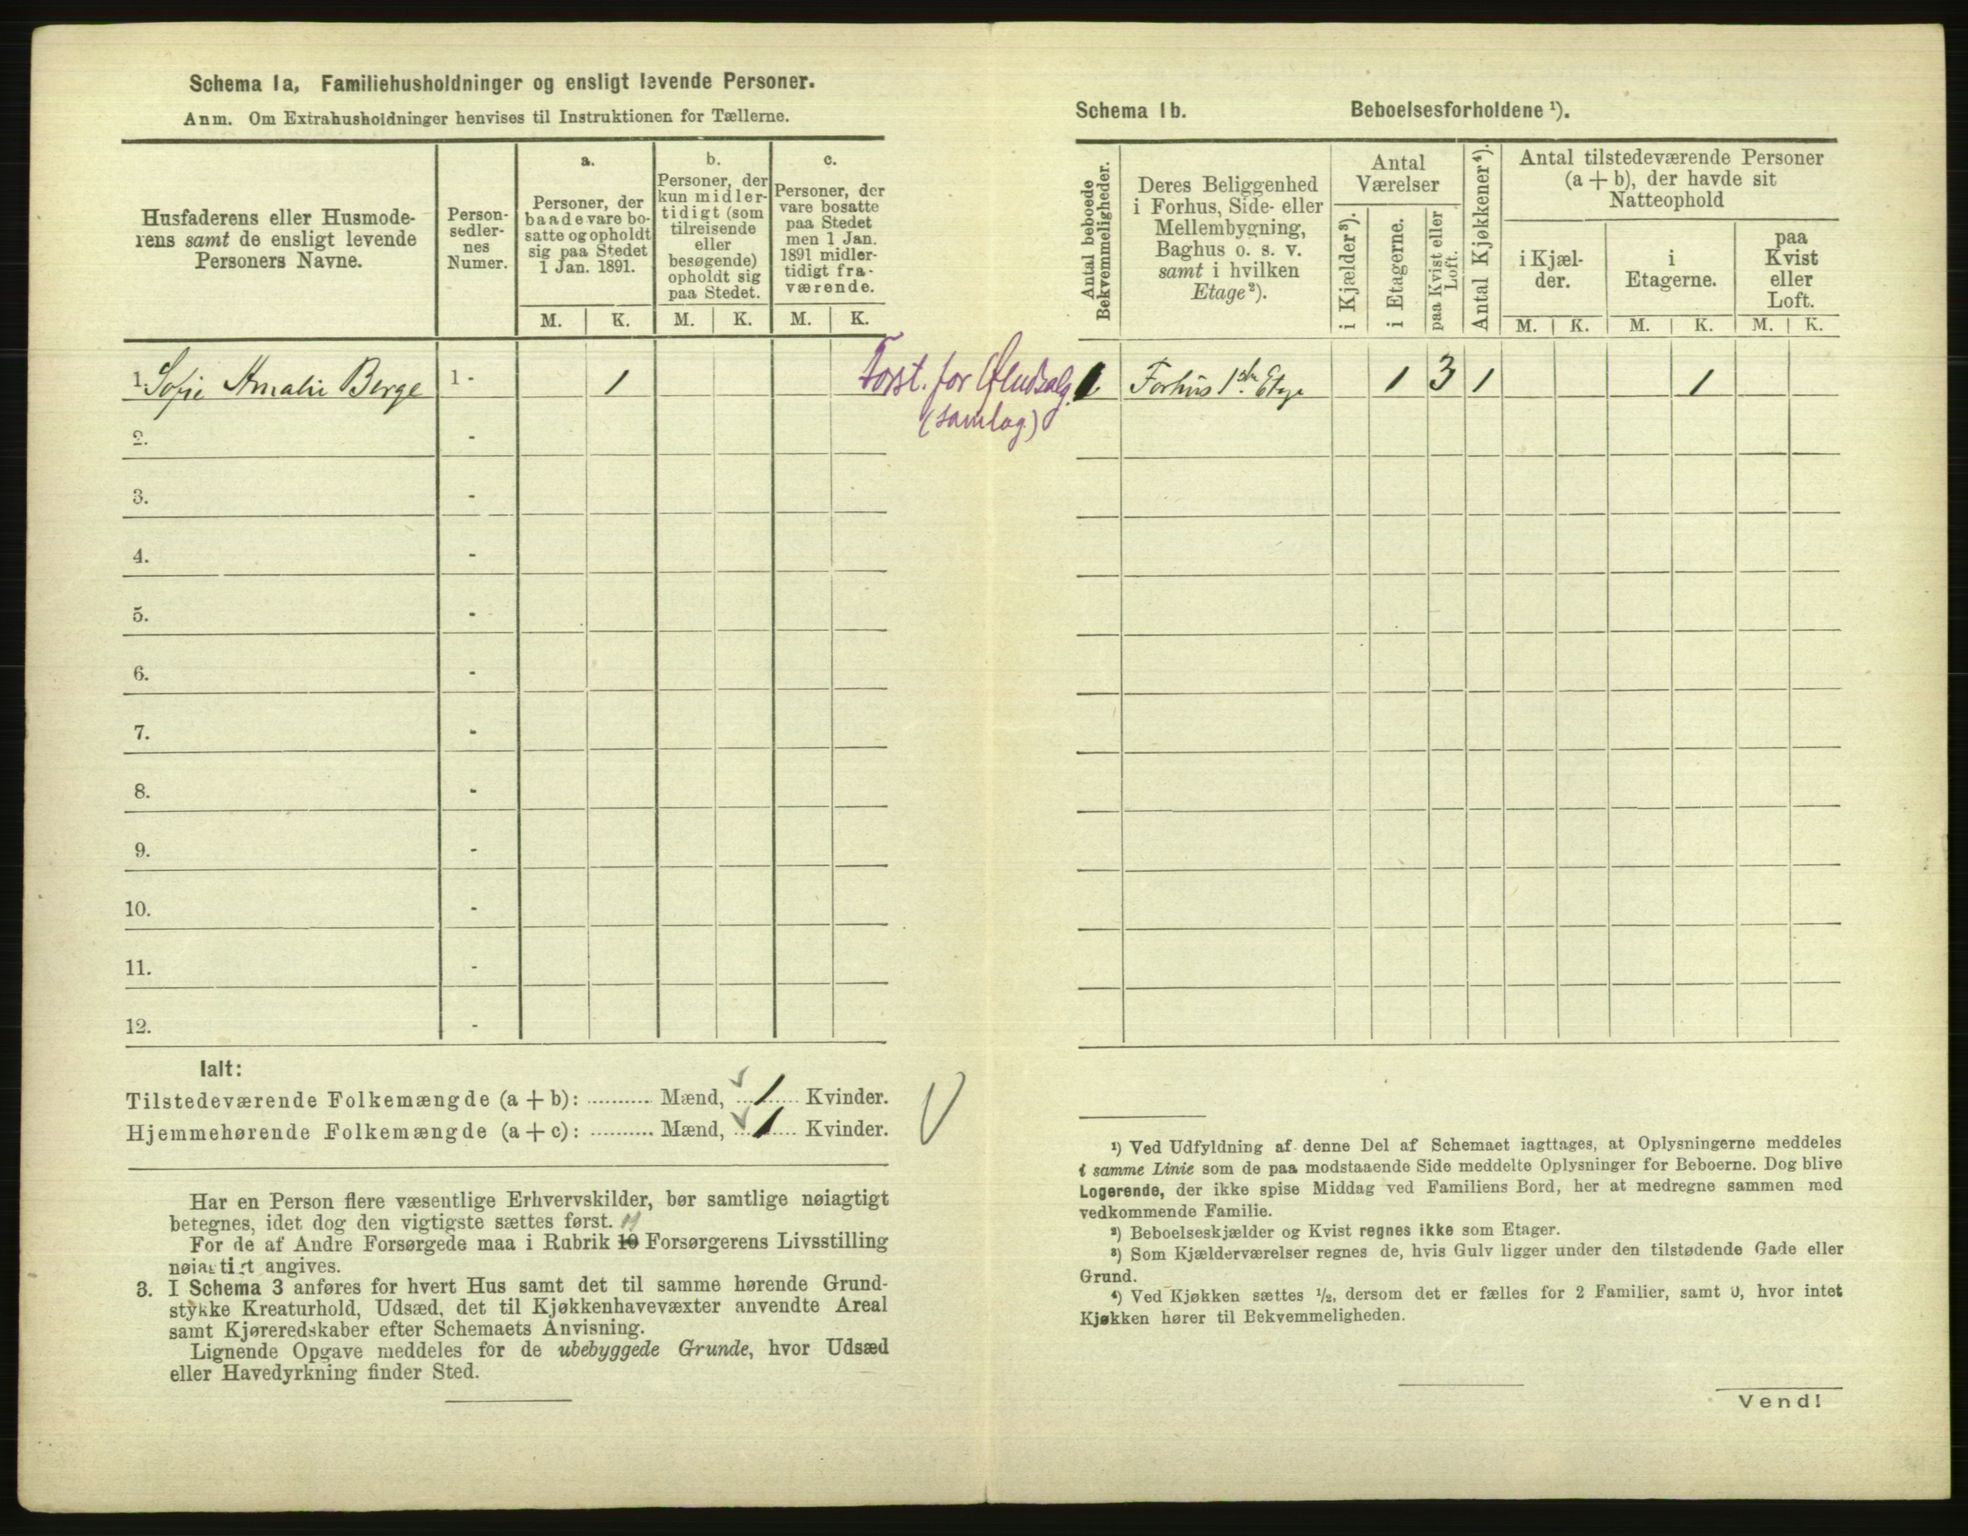 Schema 1a, Familiehusholdninger og ensligt levende Personer.
Anm. Om Extrahusholdninger henvises til Instruktionen for Tællerne.
Husfaderens eller Husmode-
rens samt de ensligt levende
Personers Navne.
Person-
sedler-
nes
Numer.
a.
Personer, der
baade vare bo-
satte og opholdt
sig paa Stedet
1 Jan. 1891.
b.
Personer, der
kun midler-
tidigt (som
tilreisende
eller
besøgende)
opholdt sig
paa Stedet.
c.
Personer, der
vare bosatte
paa Stedet
men 1 Jan.
1891 midler-
tidigt fra-
værende.
M. K. M. K. M. K.
1. Sofie Amalie Berge 1 - 1
Forst. for Øludsalg.
(samlag)
2. -
3. -
4. -
5. -
6. -
7. -
8. -
9. -
10. -
11. -
12. -
Ialt:
Tilstedeværende Folkemængde (a + b): .......... Mænd, ... 1 ... Kvinder.
Hjemmehørende Folkemængde (a + c): .......... Mænd, ... 1 ... Kvinder.
Har en Person flere væsentlige Erhvervskilder, bør samtlige nøiagtigt
betegnes, idet dog den vigtigste sættes først.
For de af Andre Forsørgede maa i Rubrik 10 Forsørgerens Livsstilling
nøiagtigt angives.
3. I Schema 3 anføres for hvert Hus samt det til samme hørende Grund-
stykke Kreaturhold, Udsæd, det til Kjøkkenhavevæxter anvendte Areal
samt Kjøreredskaber efter Schemaets Anvisning.
Lignende Opgave meddeles for de ubebyggede Grunde, hvor Udsæd
eller Havedyrkning finder Sted.
Schema 1b. Beboelsesforholdene ¹).
Antal beboede
Bekvemmeligheder.
Deres Beliggenhed
i Forhus, Side- eller
Mellembygning,
Baghus o. s. v.
samt i hvilken
Etage ²).
Antal
Værelser
i Kjælder ³).
i Etagerne.
paa Kvist eller
Loft.
Antal Kjøkkener ⁴).
Antal tilstedeværende Personer
(a + b), der havde sit
Natteophold
i Kjæl-
der.
i
Etagerne.
paa
Kvist
eller
Loft.
M. K. M. K. M. K.
1 Forhus 1ste Etage 1 3 1 1
¹) Ved Udfyldning af denne Del af Schemaet iagttages, at Oplysningerne meddeles
i samme Linie som de paa modstaaende Side meddelte Oplysninger for Beboerne. Dog blive
Logerende, der ikke spise Middag ved Familiens Bord, her at medregne sammen med
vedkommende Familie.
²) Beboelseskjælder og Kvist regnes ikke som Etager.
³) Som Kjælderværelser regnes de, hvis Gulv ligger under den tilstødende Gade eller
Grund.
⁴) Ved Kjøkken sættes ½, dersom det er fælles for 2 Familier, samt 0, hvor intet
Kjøkken hører til Bekvemmeligheden.
Vend!